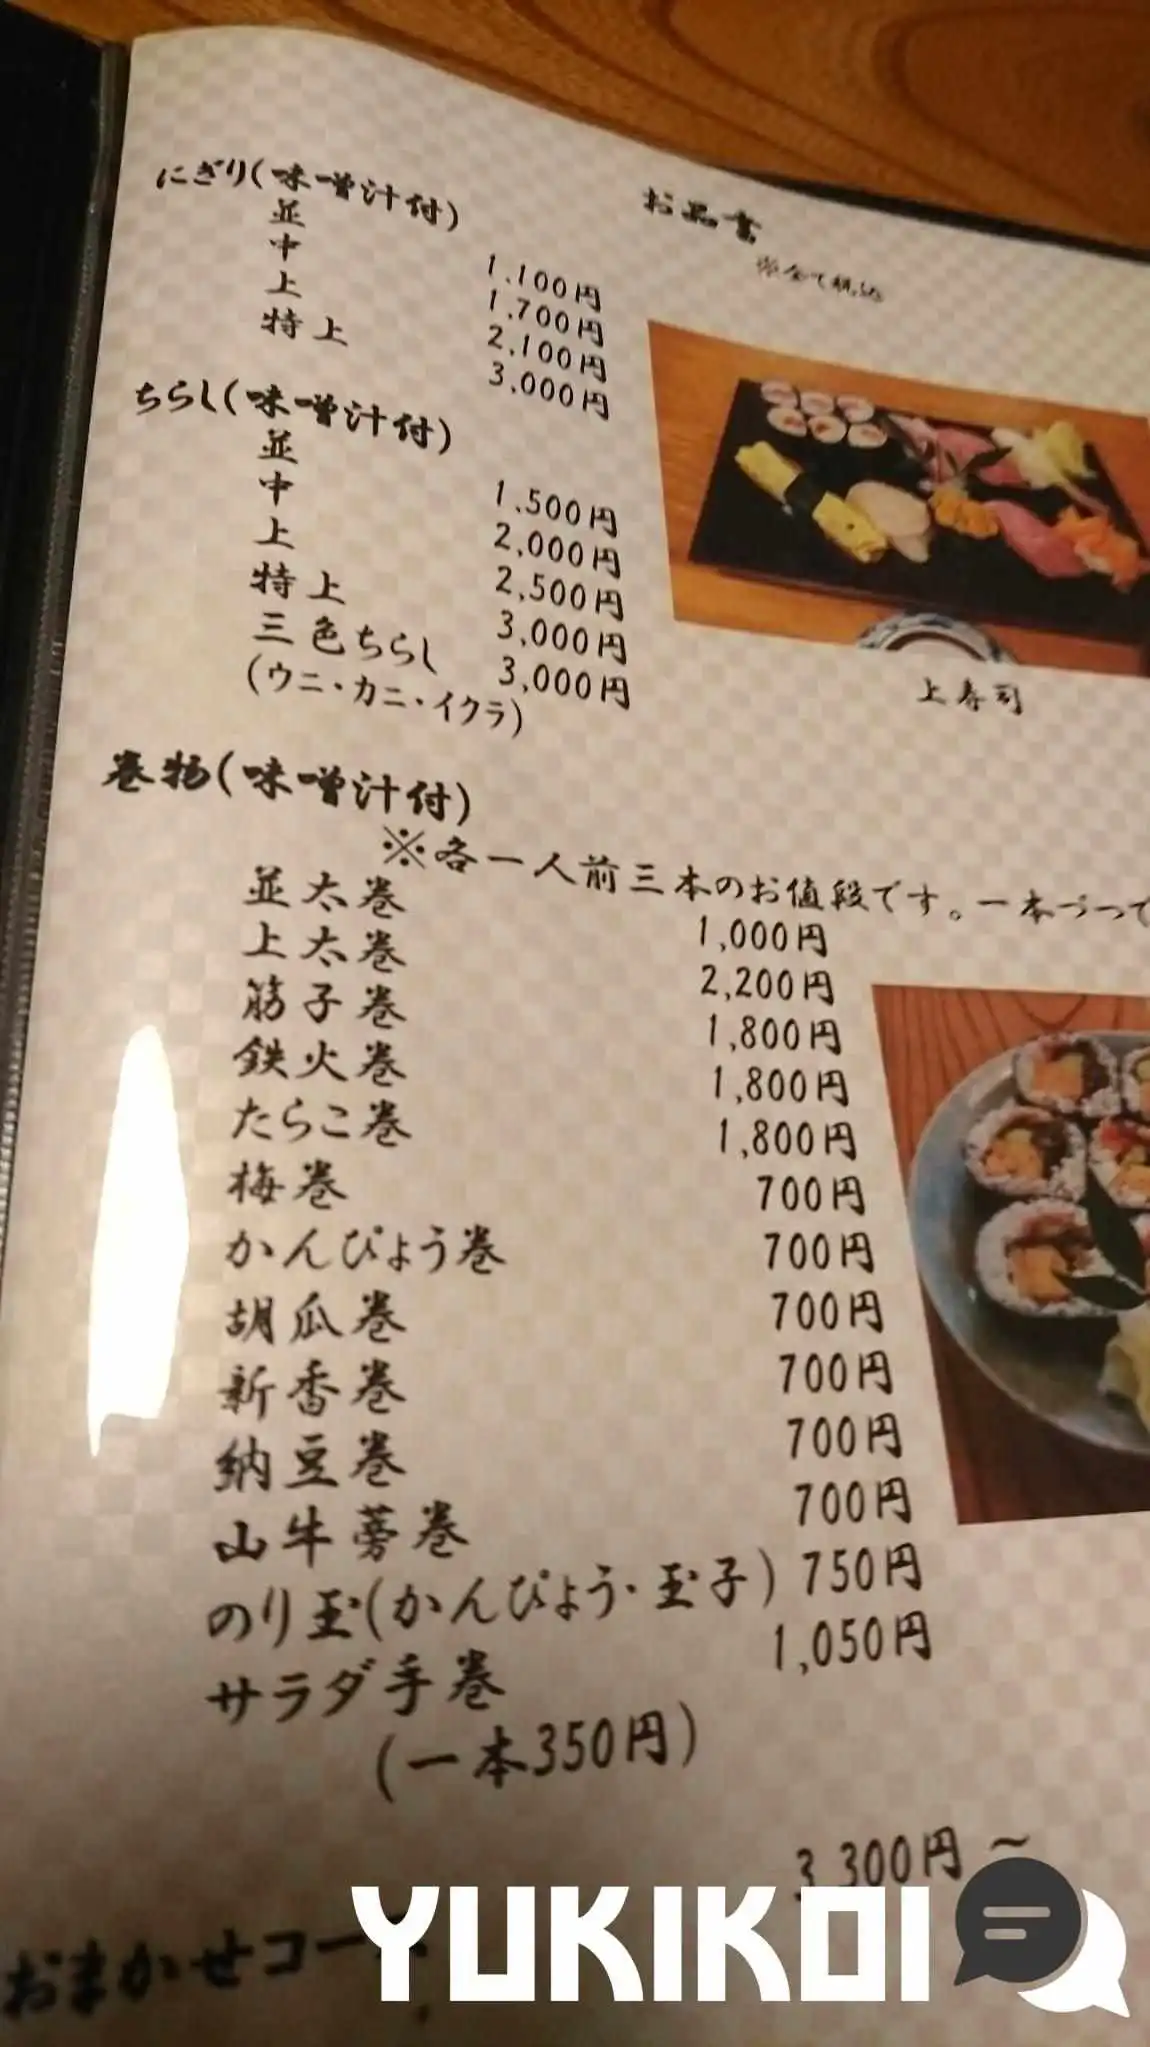 お品書
※全て税込
にぎり(味噌汁付)
並 1,100円
中 1,700円
上 2,100円
特上 3,000円
ちらし(味噌汁付)
並 1,500円
中 2,000円
上 2,500円
特上 3,000円
三色ちらし 3,000円
(ウニ・カニ・イクラ)
上寿司
巻物(味噌汁付)
※各一人前三本のお値段です。一本づつで
並太巻 1,000円
上太巻 2,200円
筋子巻 1,800円
鉄火巻 1,800円
たらこ巻 1,800円
梅巻 700円
かんぴょう巻 700円
胡瓜巻 700円
新香巻 700円
納豆巻 700円
山牛蒡巻 700円
のり玉(かんぴょう・玉子) 750円
サラダ手巻 1,050円
(一本350円)
おまかせコー 3,300円～
YUKIKOI